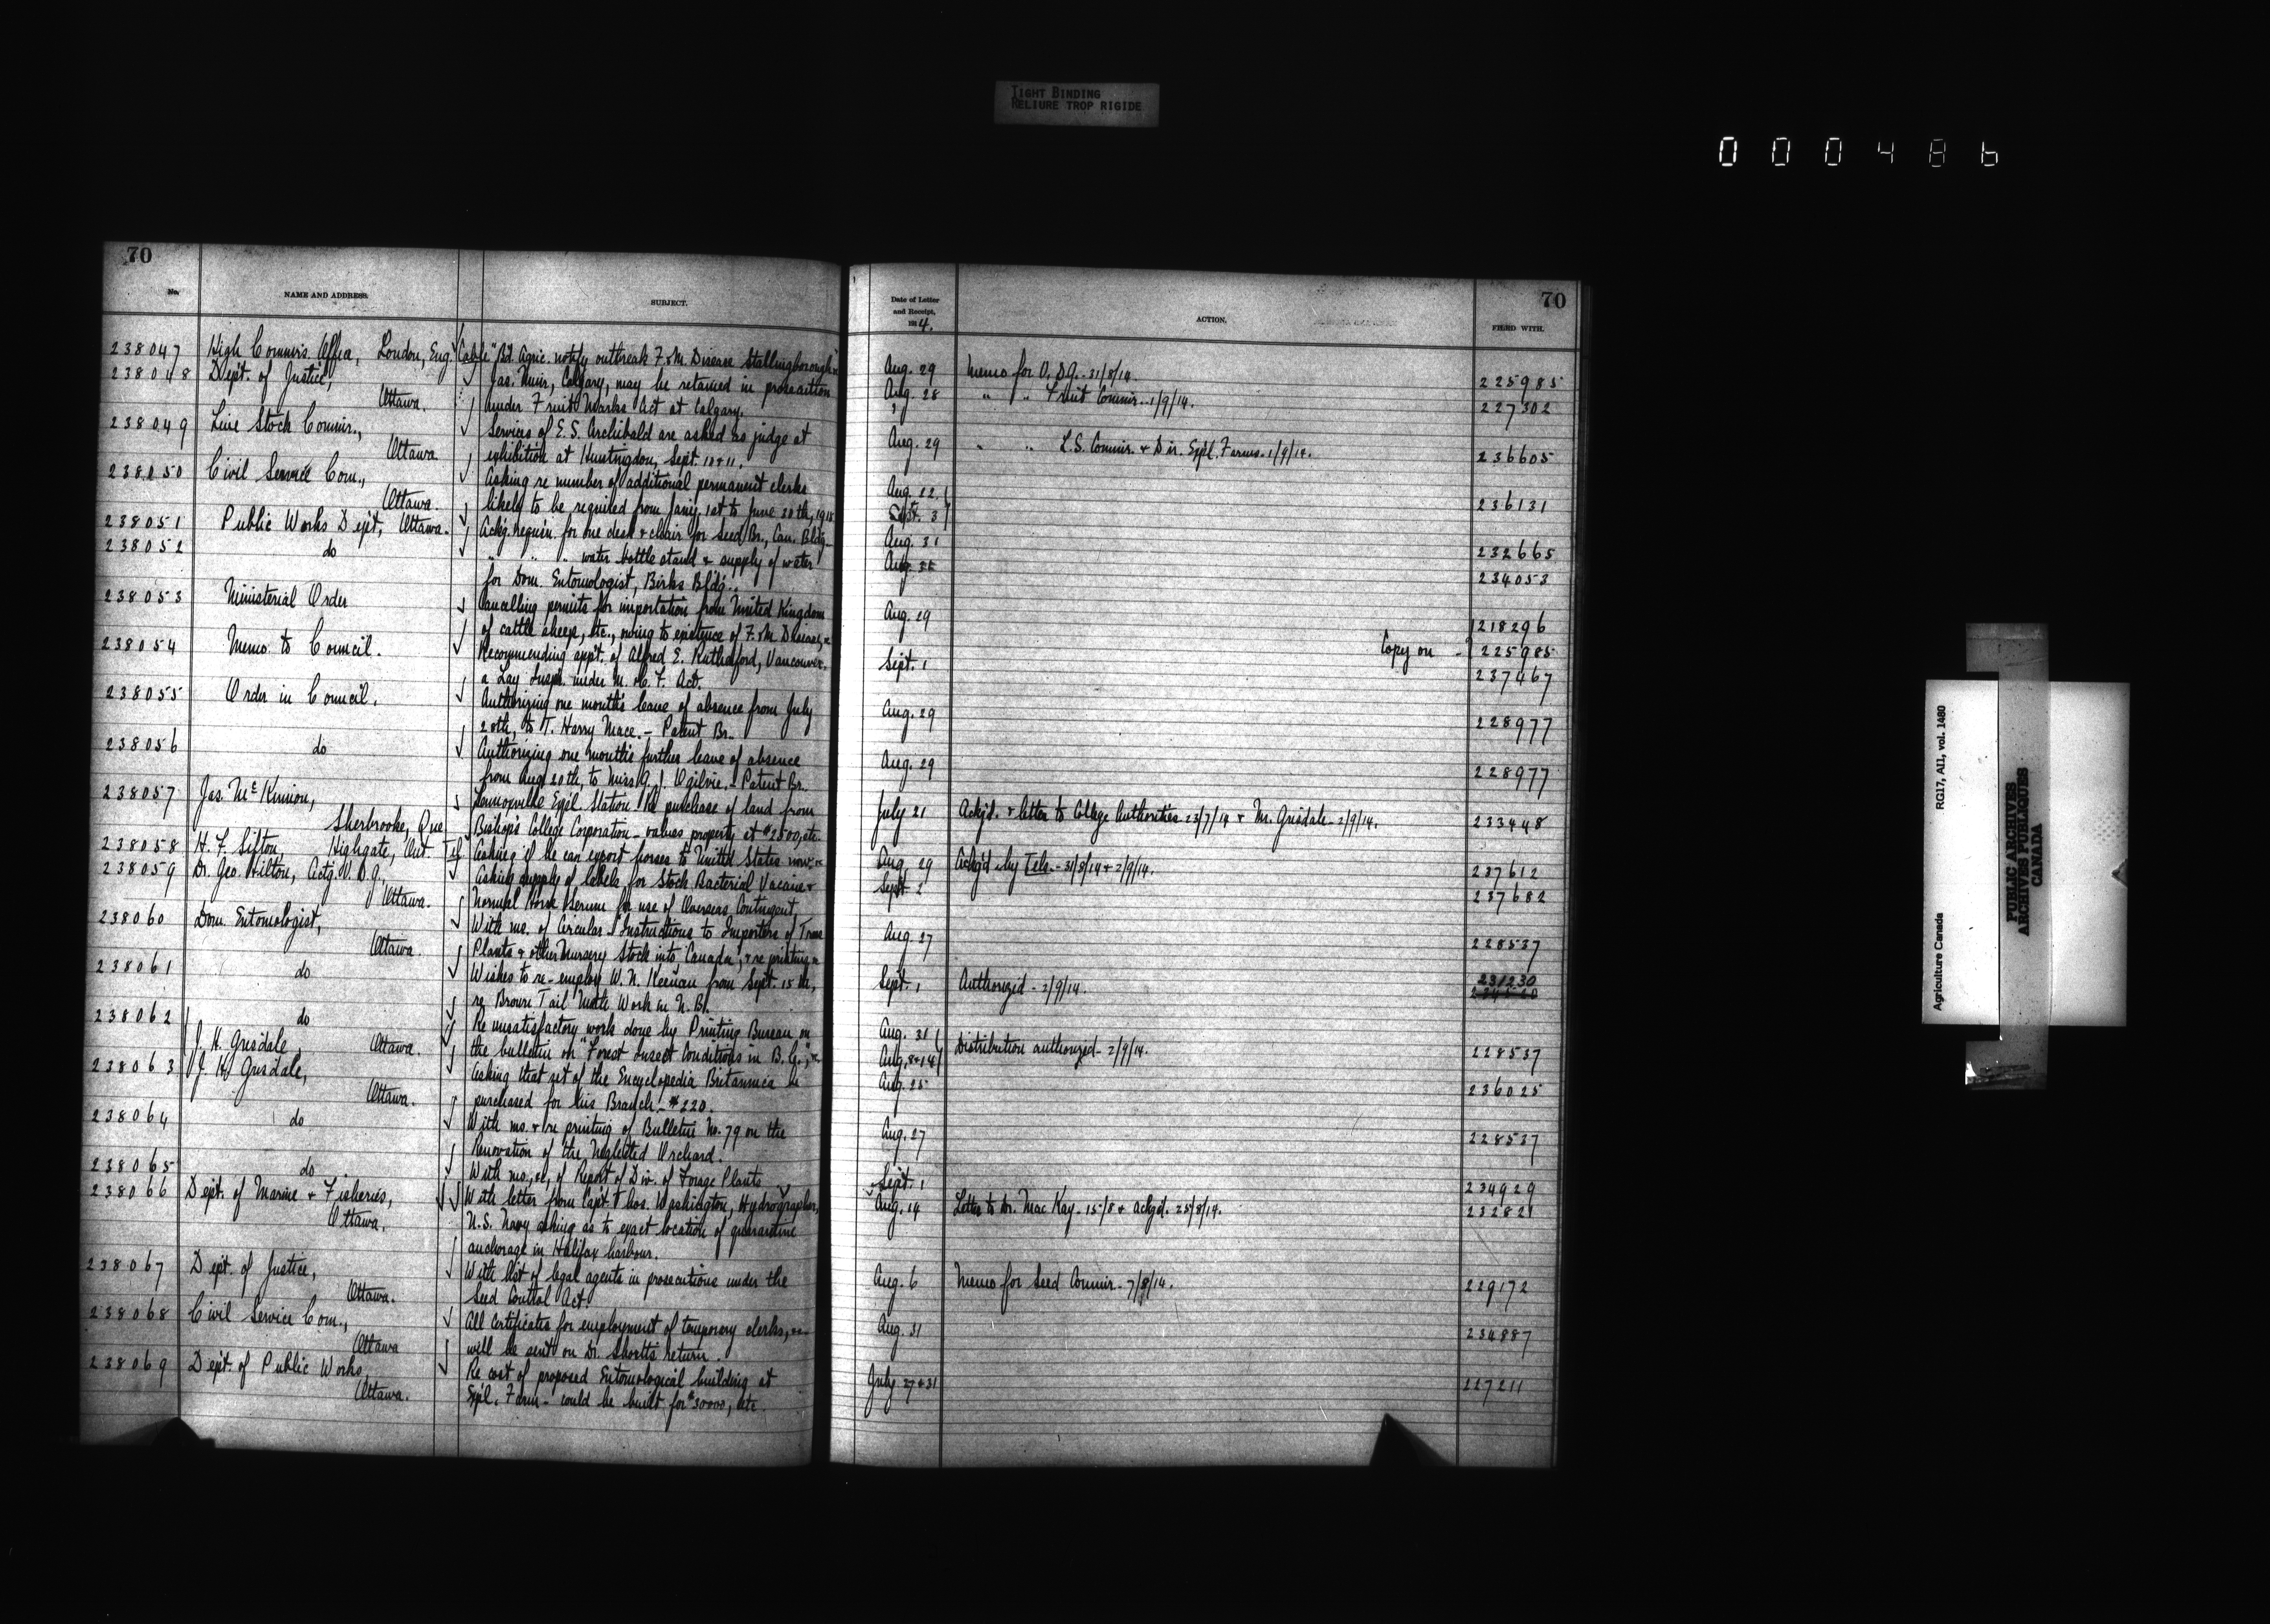 TIGHT BINDING
RELIURE TROP RIGIDE
000486
70
No. NAME AND ADDRESS. SUBJECT.
238047 High Commis. Office, London, Eng. Cable "Bd. Agric. notify outbreak F. & M. Disease Stallingborough"
238048 Dept. of Justice, Jas. Muir, Calgary, may be retained in prosecution
Ottawa. under Fruit Marks Act at Calgary.
238049 Live Stock Commr., Services of E. S. Archibald are asked as judge at
Ottawa exhibition at Huntingdon, Sept. 10 & 11.
238050 Civil Service Com., Asking re number of additional permanent clerks
Ottawa. likely to be required from Jan'y. 1st to June 30th, 1915
238051 Public Works Dept, Ottawa. Ackg. requisn. for one desk & chair for Seed Br., Can. Bldg.
238052 do " " " water bottle stand & supply of water
for Dom. Entomologist, Birks Bldg.
238053 Ministerial Order Cancelling permits for importation from United Kingdom
of cattle sheep, etc., owing to existence of F. & M Disease, &
238054 Memo. to Council. Recommending appt. of Alfred E. Rutherford, Vancouver,
a Lay Inspr. under M. & C. F. Act.
238055 Order in Council. Authorizing one month's leave of absence from July
28th, to T. Harry Mace. - Patent Br.
238056 do Authorizing one month's further leave of absence
from Aug 20th, to Miss A. J. Ogilvie. - Patent Br.
238057 Jas. McKinnon, Lennoxville Exp'l. Station. Re purchase of land from
Sherbrooke, Que Bishop's College Corporation - values property at $2500, etc.
238058 H. F. Sifton, Highgate, Ont. Tel Asking if he can export horses to United States now &
238059 Dr. Geo. Hilton, Actg. V. D. G., Asking supply of labels for Stock Bacterial Vaccine &
Ottawa. Normal Horse Serum for use of Overseas Contingent,
238060 Dom. Entomologist, With ms. of Circular "Instructions to Importers of Trees
Ottawa. Plants & other Nursery Stock into Canada", & re printing &
238061 do Wishes to re-employ W. N. Keenan from Sept. 15th,
re Brown Tail Moth Work in N. B.
238062 do Re unsatisfactory work done by Printing Bureau on
J. H. Grisdale, Ottawa. the bulletin on "Forest Insect Conditions in B. C.", &
238063 J. H. Grisdale, Asking that set of the Encyclopedia Britannica be
Ottawa. purchased for his Branch - $220.
238064 do With ms. & re printing of Bulletin No. 79 on the
Renovation of the Neglected Orchard.
238065 do With ms, &c, of Report of Div. of Forage Plants
238066 Dept. of Marine & Fisheries, With letter from Capt. Thos. Washington, Hydrographer,
Ottawa, U. S. Navy asking as to exact location of quarantine
anchorage in Halifax harbour.
238067 Dept. of Justice, With list of legal agents in prosecutions under the
Ottawa. Seed Control Act.
238068 Civil Service Com., All certificates for employment of temporary clerks,
Ottawa will be sent on Dr. Shortt's return.
238069 Dept. of Public Works, Re cost of proposed Entomological building at
Ottawa. Exp'l. Farm - could be built for $30000, etc
70
Date of Letter and Receipt, 1914. ACTION. FILED WITH.
Aug. 29 Memo for V. D. G. - 31/8/14. 225985
Aug. 28 " " Fruit Commr. - 1/9/14. 227302
Aug. 29 " " L. S. Commr. & Dir. Exp'l. Farms. 1/9/14. 236605
Aug. 22
Sept. 3 236131
Aug. 31 232665
234053
Aug. 29 218296
Copy on - 225985
Sept. 1 237467
Aug. 29 228977
Aug. 29 228977
July 21 Ack'd. & letter to College Authorities - 23/7/14 & Mr. Grisdale - 2/9/14. 233448
Aug. 29 Ackg'd by Tels. - 31/8/14 & 2/9/14. 237612
Sept. 2 237682
Aug. 27 228537
Sept. 1 Authorized - 2/9/14. 231230
Aug. 31
Aug. 8 & 14 Distribution authorized - 2/9/14. 228537
Aug. 25 236025
Aug. 27 228537
Sept. 1 234929
Aug. 14 Letter to Dr. MacKay - 15/8 & ackg'd. 25/8/14. 232821
Aug. 6 Memo for Seed Commr. - 7/8/14. 229172
Aug. 31 234887
July 27 & 31 227211
Agriculture Canada RG17, AII, vol. 1460
PUBLIC ARCHIVES
ARCHIVES PUBLIQUES
CANADA